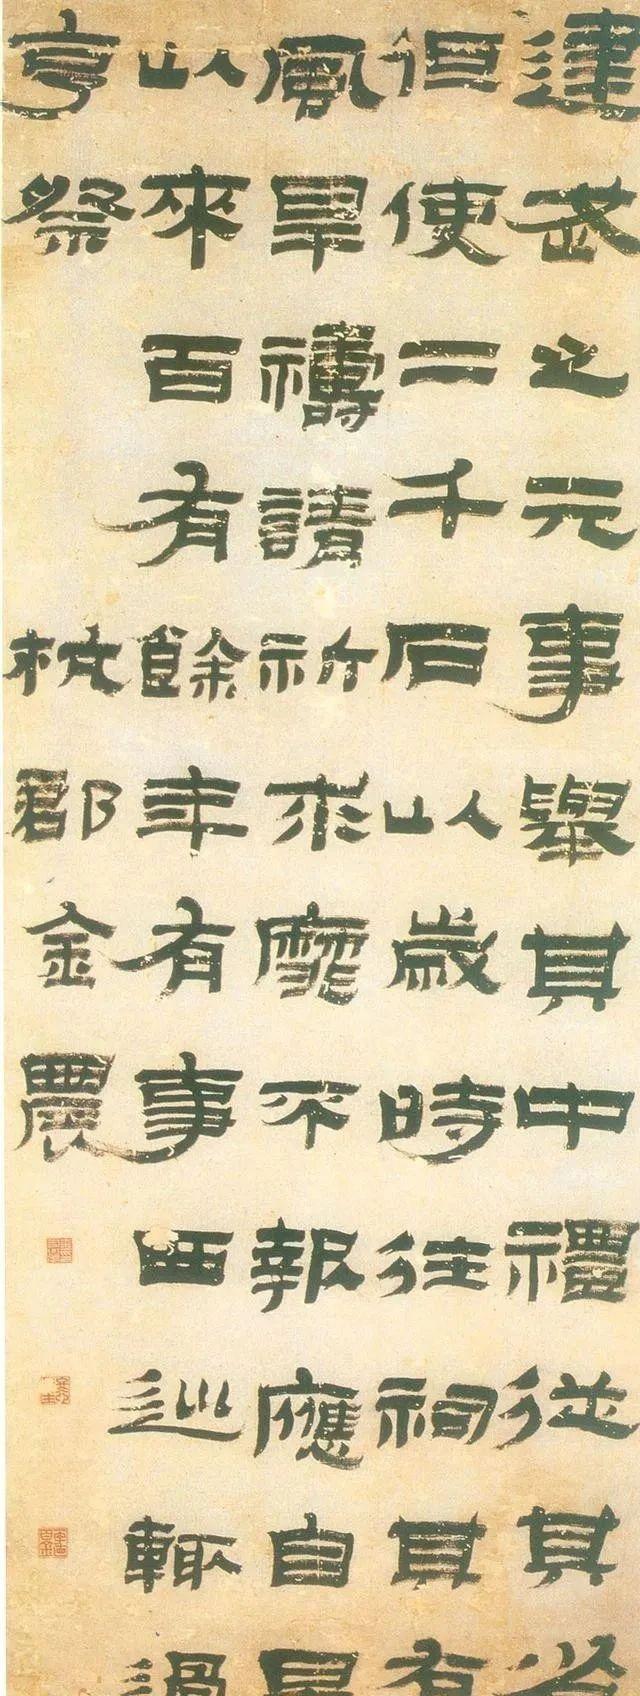 建武之元事舉其中禮從其省
但使二千石以歲時往祠其有
風旱禱請祈求靡不報應自是
以來百有餘年有事西巡輒過
亨祭
杭郡金農